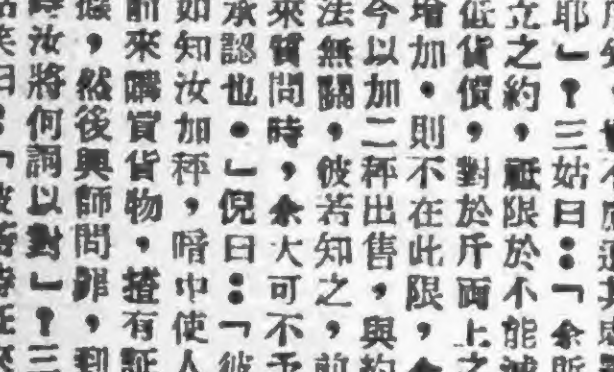 耶」？三姑曰：「余所
立之約，祗限於不能減
低貨價，對於斤両上之
增加。則不在此限，余
今以加二秤出售，與約
法無關，彼若知之，前
來質問時，余大可不予
承認也。」倪曰：「彼
如知汝加秤，暗中使人
前來購買貨物，揸有証
據，然後興師問罪，到
時汝將何詞以對」？三